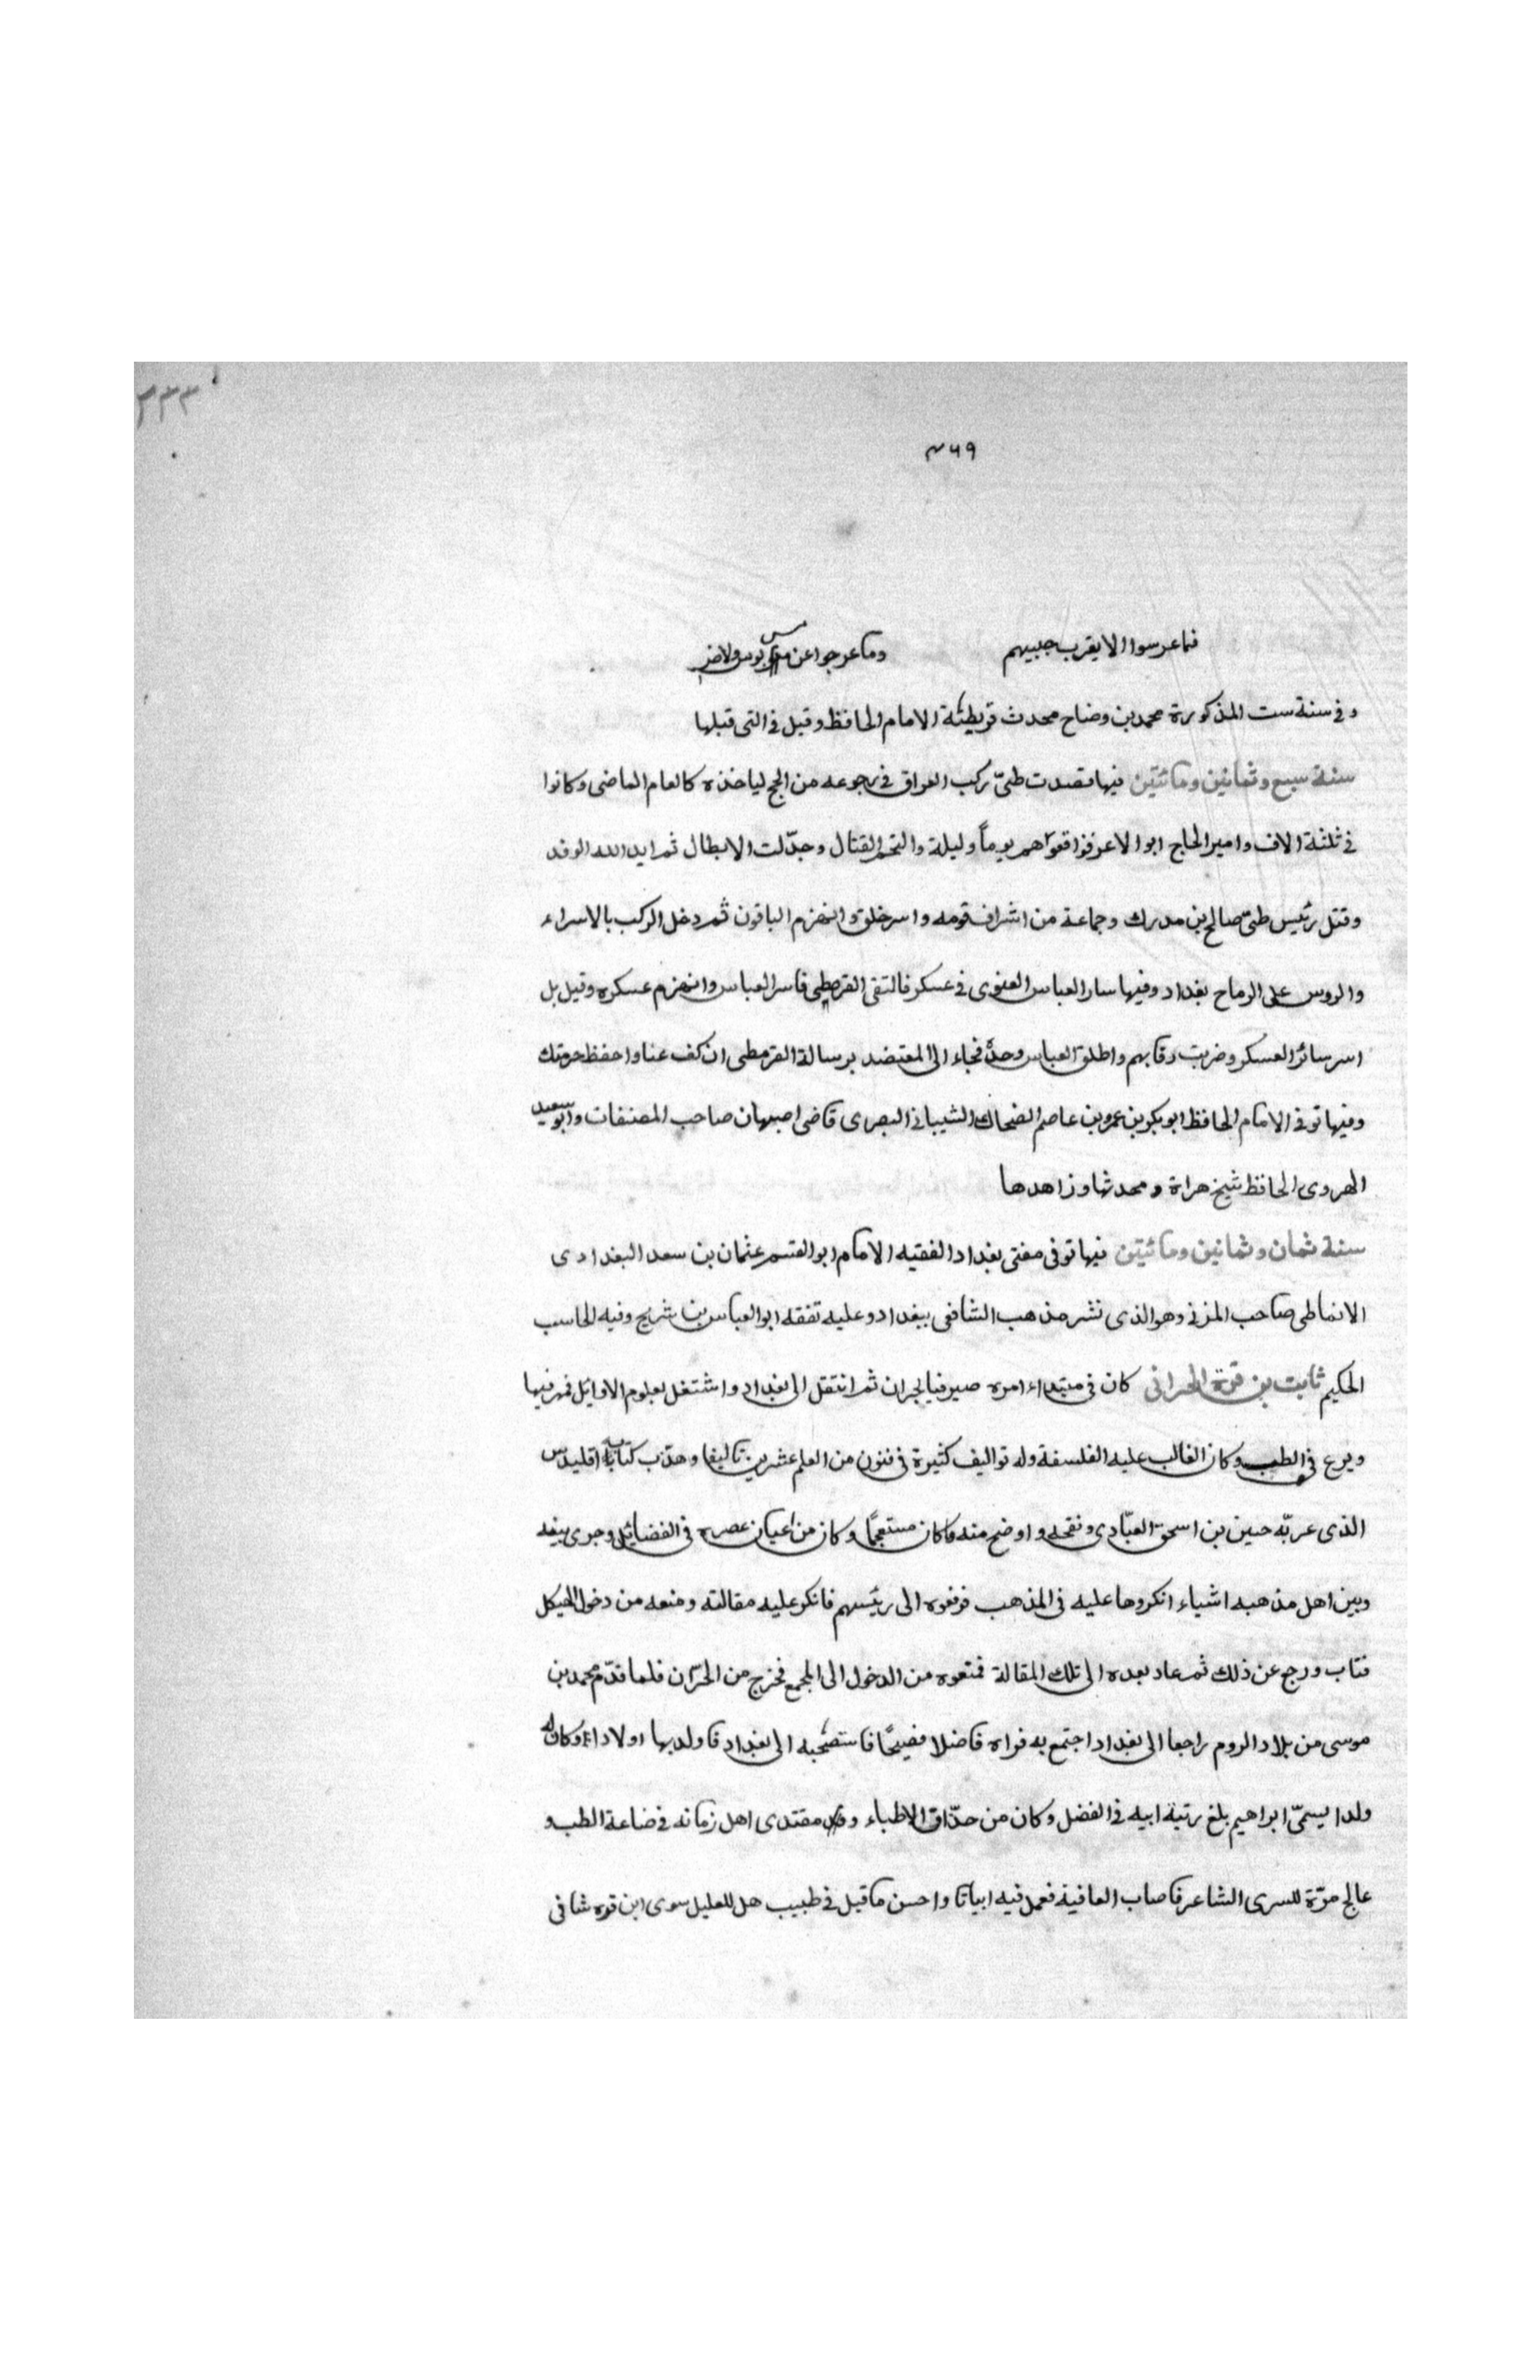 ٣٣٣
٣٦٩
فما عرسوا الا بقرب حبيبهم وما عرجوا عن مس بوس ولا ضر
و فى سنة ست المذكورة محمد بن وضاح محدث قريطئة الامام الحافظ وقيل فى التى قبلها
سنة سبع وثمانين ومائتين فيها قصدت طىّ ركب العراق فى رجوعه من الحج لياخذه كالعام الماضى وكانوا
فى ثلثة الاف وامير الحاج ابو الاعز فواقعوا هم يوماً وليلة والتحم القتال وجدّلت الابطال ثم ايد الله الوفد
وقتل رئيس طىّ صالح بن مدرك وجماعة من اشراف قومه واسر خلق وانهزم الباقون ثم دخل الركب بالاسراء
والروس على الرماح بغداد وفيها سار العباس الغنوى فى عسكر فالتقى القرمطى فاسر العباس وانهزم عسكره وقيل بل
اسر سائر العسكر وضربت رقابهم واطلق العباس وحده فجاء الى المعتضد برسالة القرمطى ان كف عنا واحفظ حرمتك
وفيها توفى الامام الحافظ ابو بكر بن عمرو بن عاصم الضحاك الشيبانى البصرى قاضى اصبهان صاحب المصنفات وابو سعيد
الهروى الحافظ شيخ هراة ومحدثها وزاهدها
سنة ثمان وثمانين ومائتين فيها توفى مفتى بغداد الفقيه الامام ابو القسم عثمان بن سعد البغدادى
الانماطى صاحب المزنى وهو الذى نشر مذهب الشافعى ببغداد وعليه تفقه ابو العباس بن شريح وفيه الحاسب
الحكيم ثابت بن قرة الحرانى كان فى مبتداء امره صيرفيا بحران ثم انتقل الى بغداد واشتغل بعلوم الاوايل فمهر فيها
وبرع فى الطب وكان الغالب عليه الفلسفة وله تواليف كثيرة فى فنون من العلم عشرين تاليفا وهذّب كتاب اقليدس
الذى عربّه حنين بن اسحق العبّادى ونقحه واوضح منه ما كان مستعجمًا وكان من اعيان عصره فى الفضائيل وجرى بينه
وبين اهل مذهبه اشياء انكروها عليه فى المذهب فرفعوه الى رئيسهم فانكر عليه مقالته ومنعه من دخول الهيكل
فتاب ورجع عن ذلك ثم عاد بعده الى تلك المقالة فمنعوه من الدخول الى المجمع فخرج من الحرّان فلما قدّم محمد بن
موسى من بلاد الروم راجعا الى بغداد اجتمع به فراه فاضلا فصيحًا فاستصحبه الى بغداد فاولد بها اولادا وكان له
ولدا يسمىّ ابراهيم بلغ رتبة ابيه فى الفضل وكان من حذّاق الاطباء و مقتدى اهل زمانه فى ضاعة الطب و
عالج مرّة للسرى الشاعر فاصاب العافية فعمل فيه ابياتا واحسن ما قيل فى طبيب هل للعليل سوى ابن قره شافى